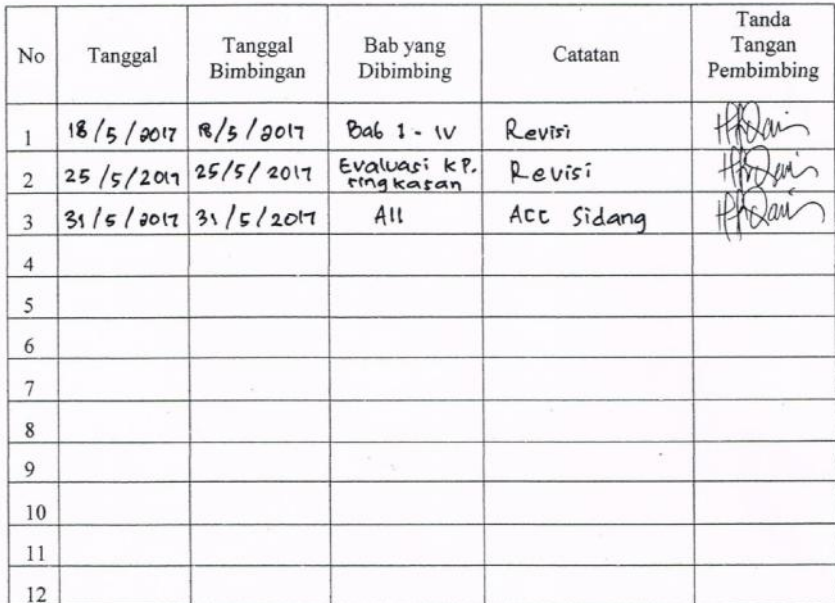 No Tanggal Tanggal Bimbingan Bab yang Dibimbing Catatan Tanda Tangan Pembimbing
1 18/5/2017 18/5/2017 Bab I - IV Revisi
2 25/5/2017 25/5/2017 Evaluasi KP. ringkasan Revisi
3 31/5/2017 31/5/2017 All ACC Sidang
4
5
6
7
8
9
10
11
12